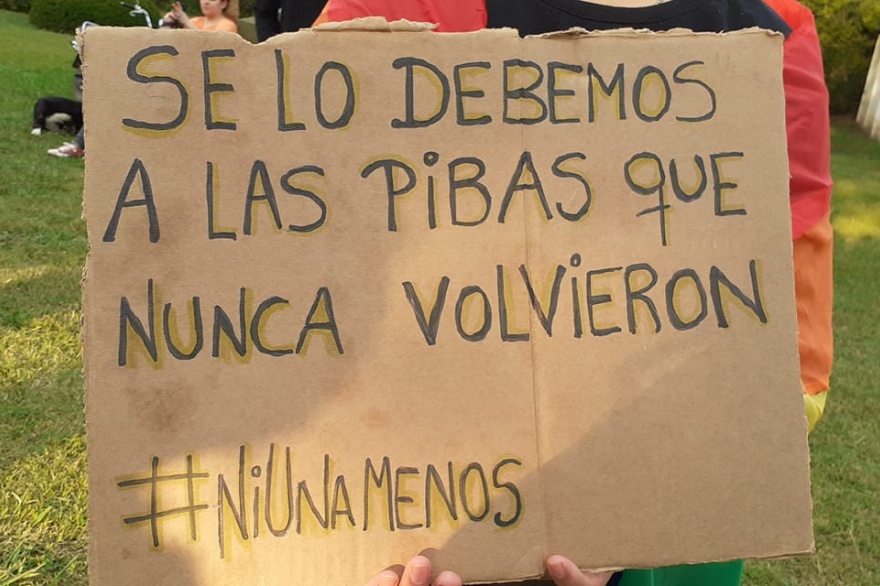 SE LO DEBEMOS
A LAS PiBAS QUE
NUNCA VOLViERON
#NiUNAMENOS